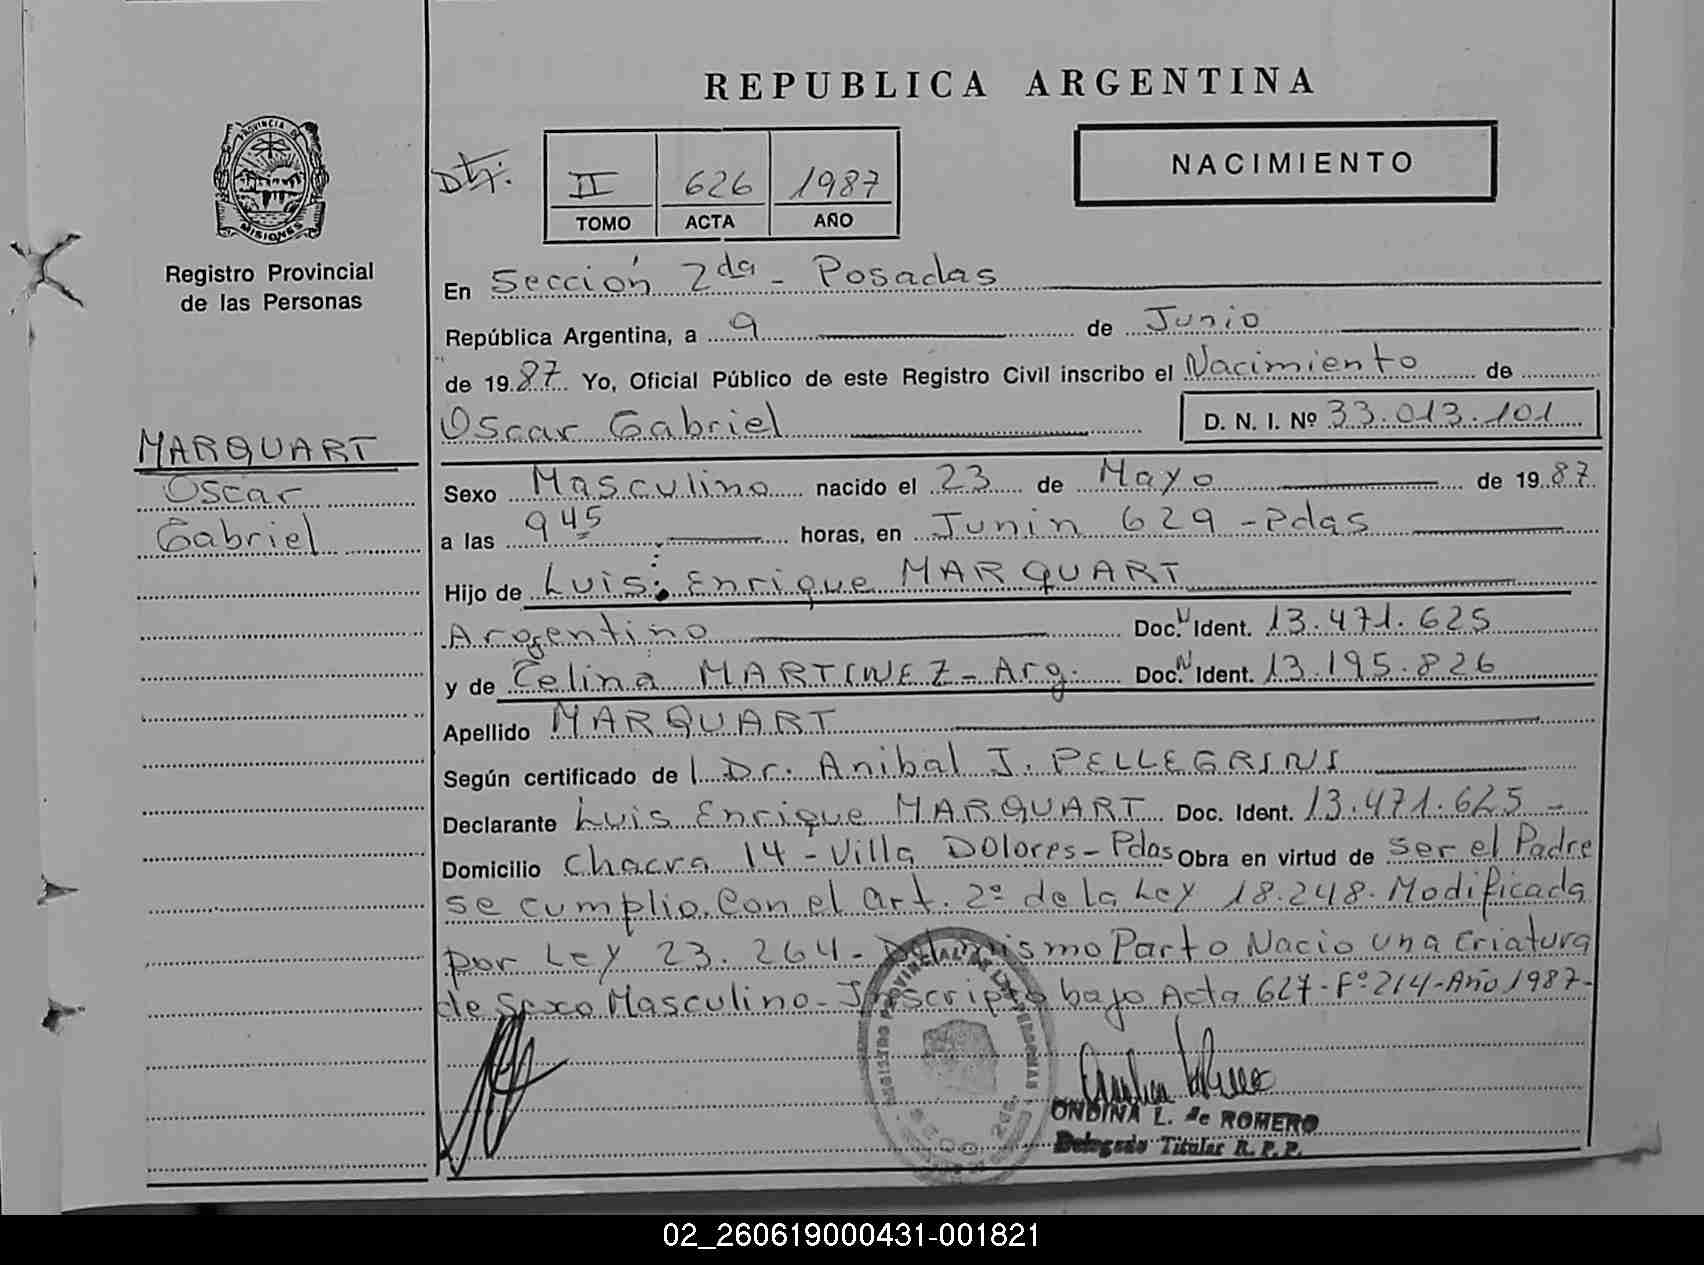 REPUBLICA ARGENTINA
PROVINCIA DE
MISIONES
Registro Provincial
de las Personas
II 626 1987
TOMO ACTA AÑO
NACIMIENTO
En Sección 2da - Posadas
República Argentina, a 9 de Junio
de 1987 Yo, Oficial Público de este Registro Civil inscribo el Nacimiento de
Oscar Gabriel D. N. I. Nº 33.013.101
MARQUART
Oscar
Gabriel
Sexo Masculino nacido el 23 de Mayo de 1987
a las 9 45 horas, en Junin 629 - Pdas
Hijo de Luis Enrique MARQUART
Argentino Doc. N Ident. 13.471.625
y de Celina MARTINEZ - Arg. Doc. N Ident. 13.195.826
Apellido MARQUART
Según certificado de l Dr. Anibal J. PELLEGRINI
Declarante Luis Enrique MARQUART Doc. Ident. 13.471.625 -
Domicilio Chacra 14 - Villa Dolores - Pdas Obra en virtud de ser el Padre
se cumplio Con el art. 2º de la Ley 18.248. Modificada
por Ley 23.264 - Del mismo Parto Nacio una Criatura
de Sexo Masculino - Inscripto bajo Acta 627 - Fº 214 - Año 1987 -
ONDINA L. de ROMERO
Delegado Titular R. P. P.
02_260619000431-001821